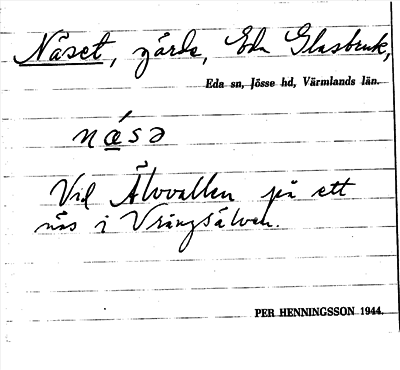 Näset, gårdn, Eda Glasbruk,
Eda sn, Jösse hd, Värmlands län.
nǽ̲sə
Vid Älvvallen på ett
näs i Vrångsälven.
PER HENNINGSSON 1944.